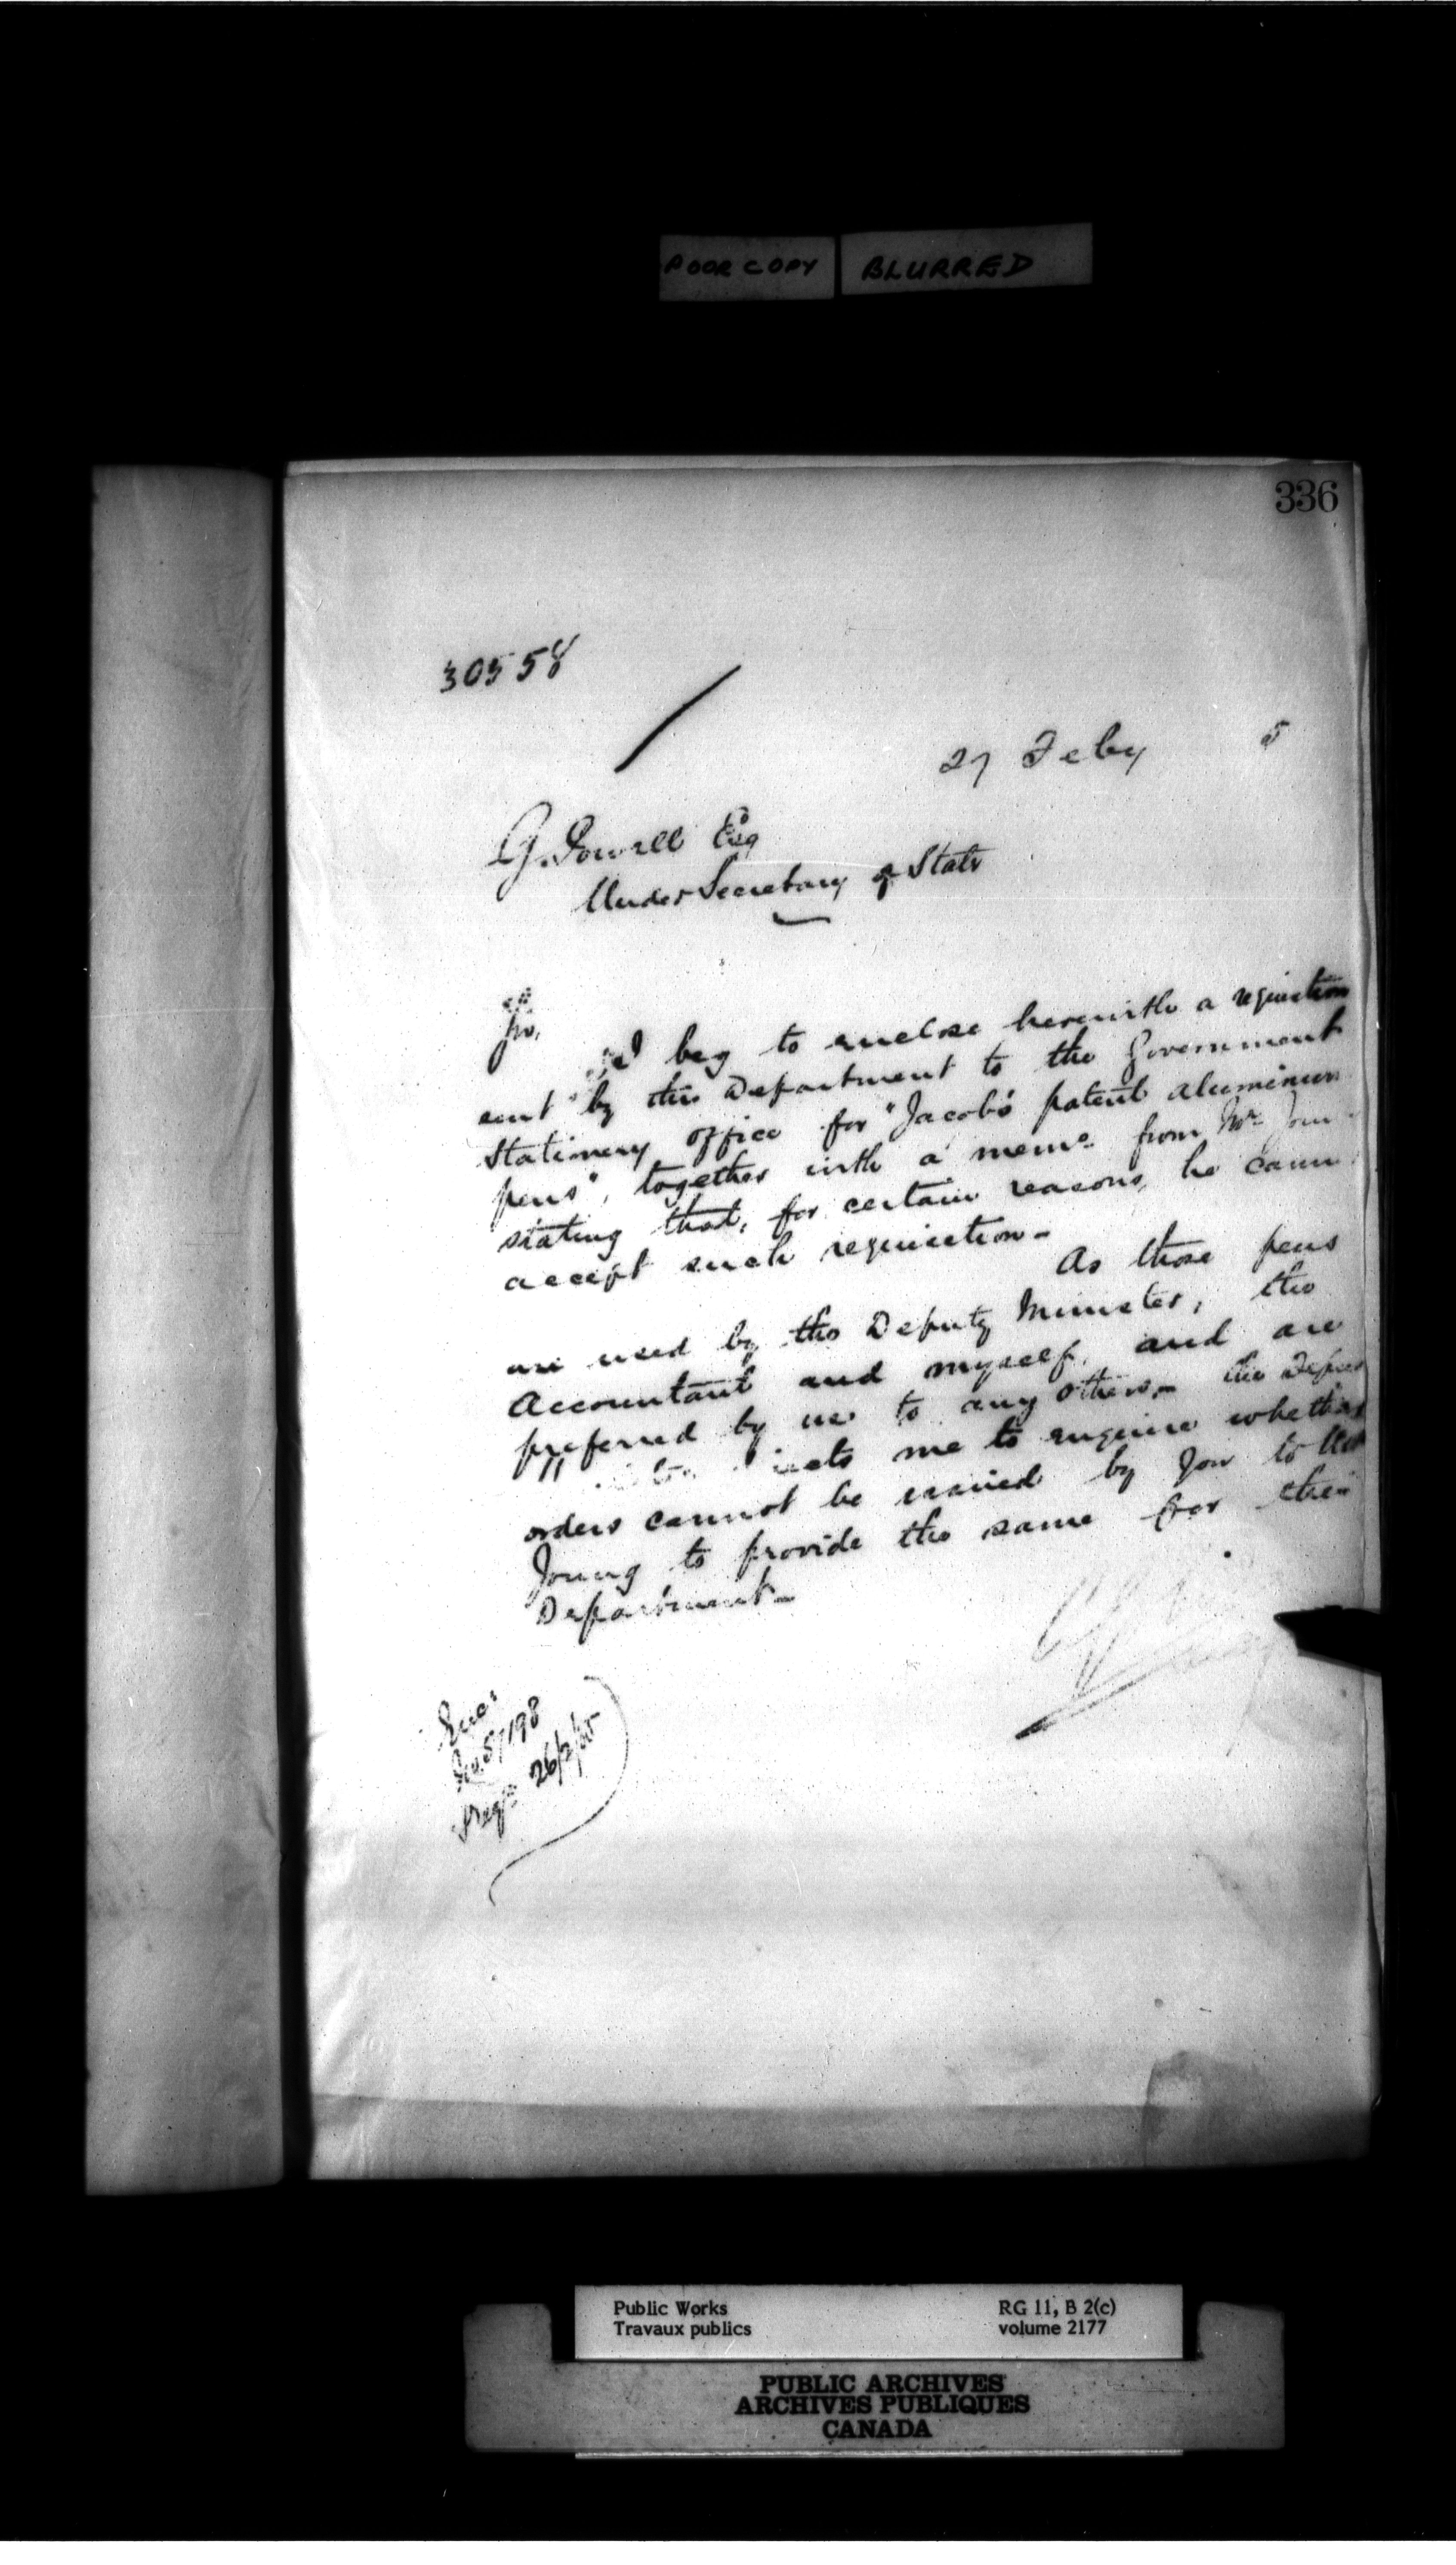 POOR COPY BLURRED
336
30558
27 Feby 5
G. Powell Esq
Under Secretary of State
Sir,
I beg to enclose herewith a requisition
sent by this Department to the Government
Stationery office for "Jacob's patent aluminium
pens", together with a memo. from Mr.
stating that, for certain reasons, he
accept such requisition-
As those pens
are used by the Deputy Minister, the
Accountant and myself, and are
preferred by us to any others- the
me to enquire whether
orders cannot be issued by you to
Young to provide the same for this
Department-
Enc:
No. 57198
26/2/85
Public Works
Travaux publics
RG 11, B 2(c)
volume 2177
PUBLIC ARCHIVES
ARCHIVES PUBLIQUES
CANADA